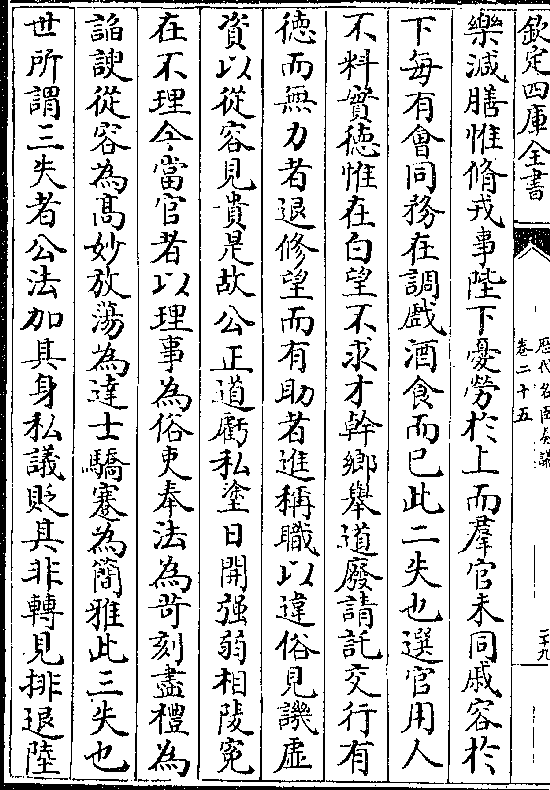 欽定四庫全書
歷代名臣奏議
卷二十五
二十九
樂減膳惟脩戎事陛下憂勞於上而羣官未同戚容於
下每有會同務在調戲酒食而已此二失也選官用人
不料實德惟在白望不求才幹鄉舉道廢請託交行有
德而無力者退修望而有助者進稱職以違俗見譏虛
資以從容見貴是故公正道虧私塗日開强弱相陵寃
在不理今當官者以理事為俗吏奉法為苛刻盡禮為
諂諛從容為髙妙放蕩為達士驕蹇為簡雅此三失也
世所謂三失者公法加其身私議貶其非轉見排退陸